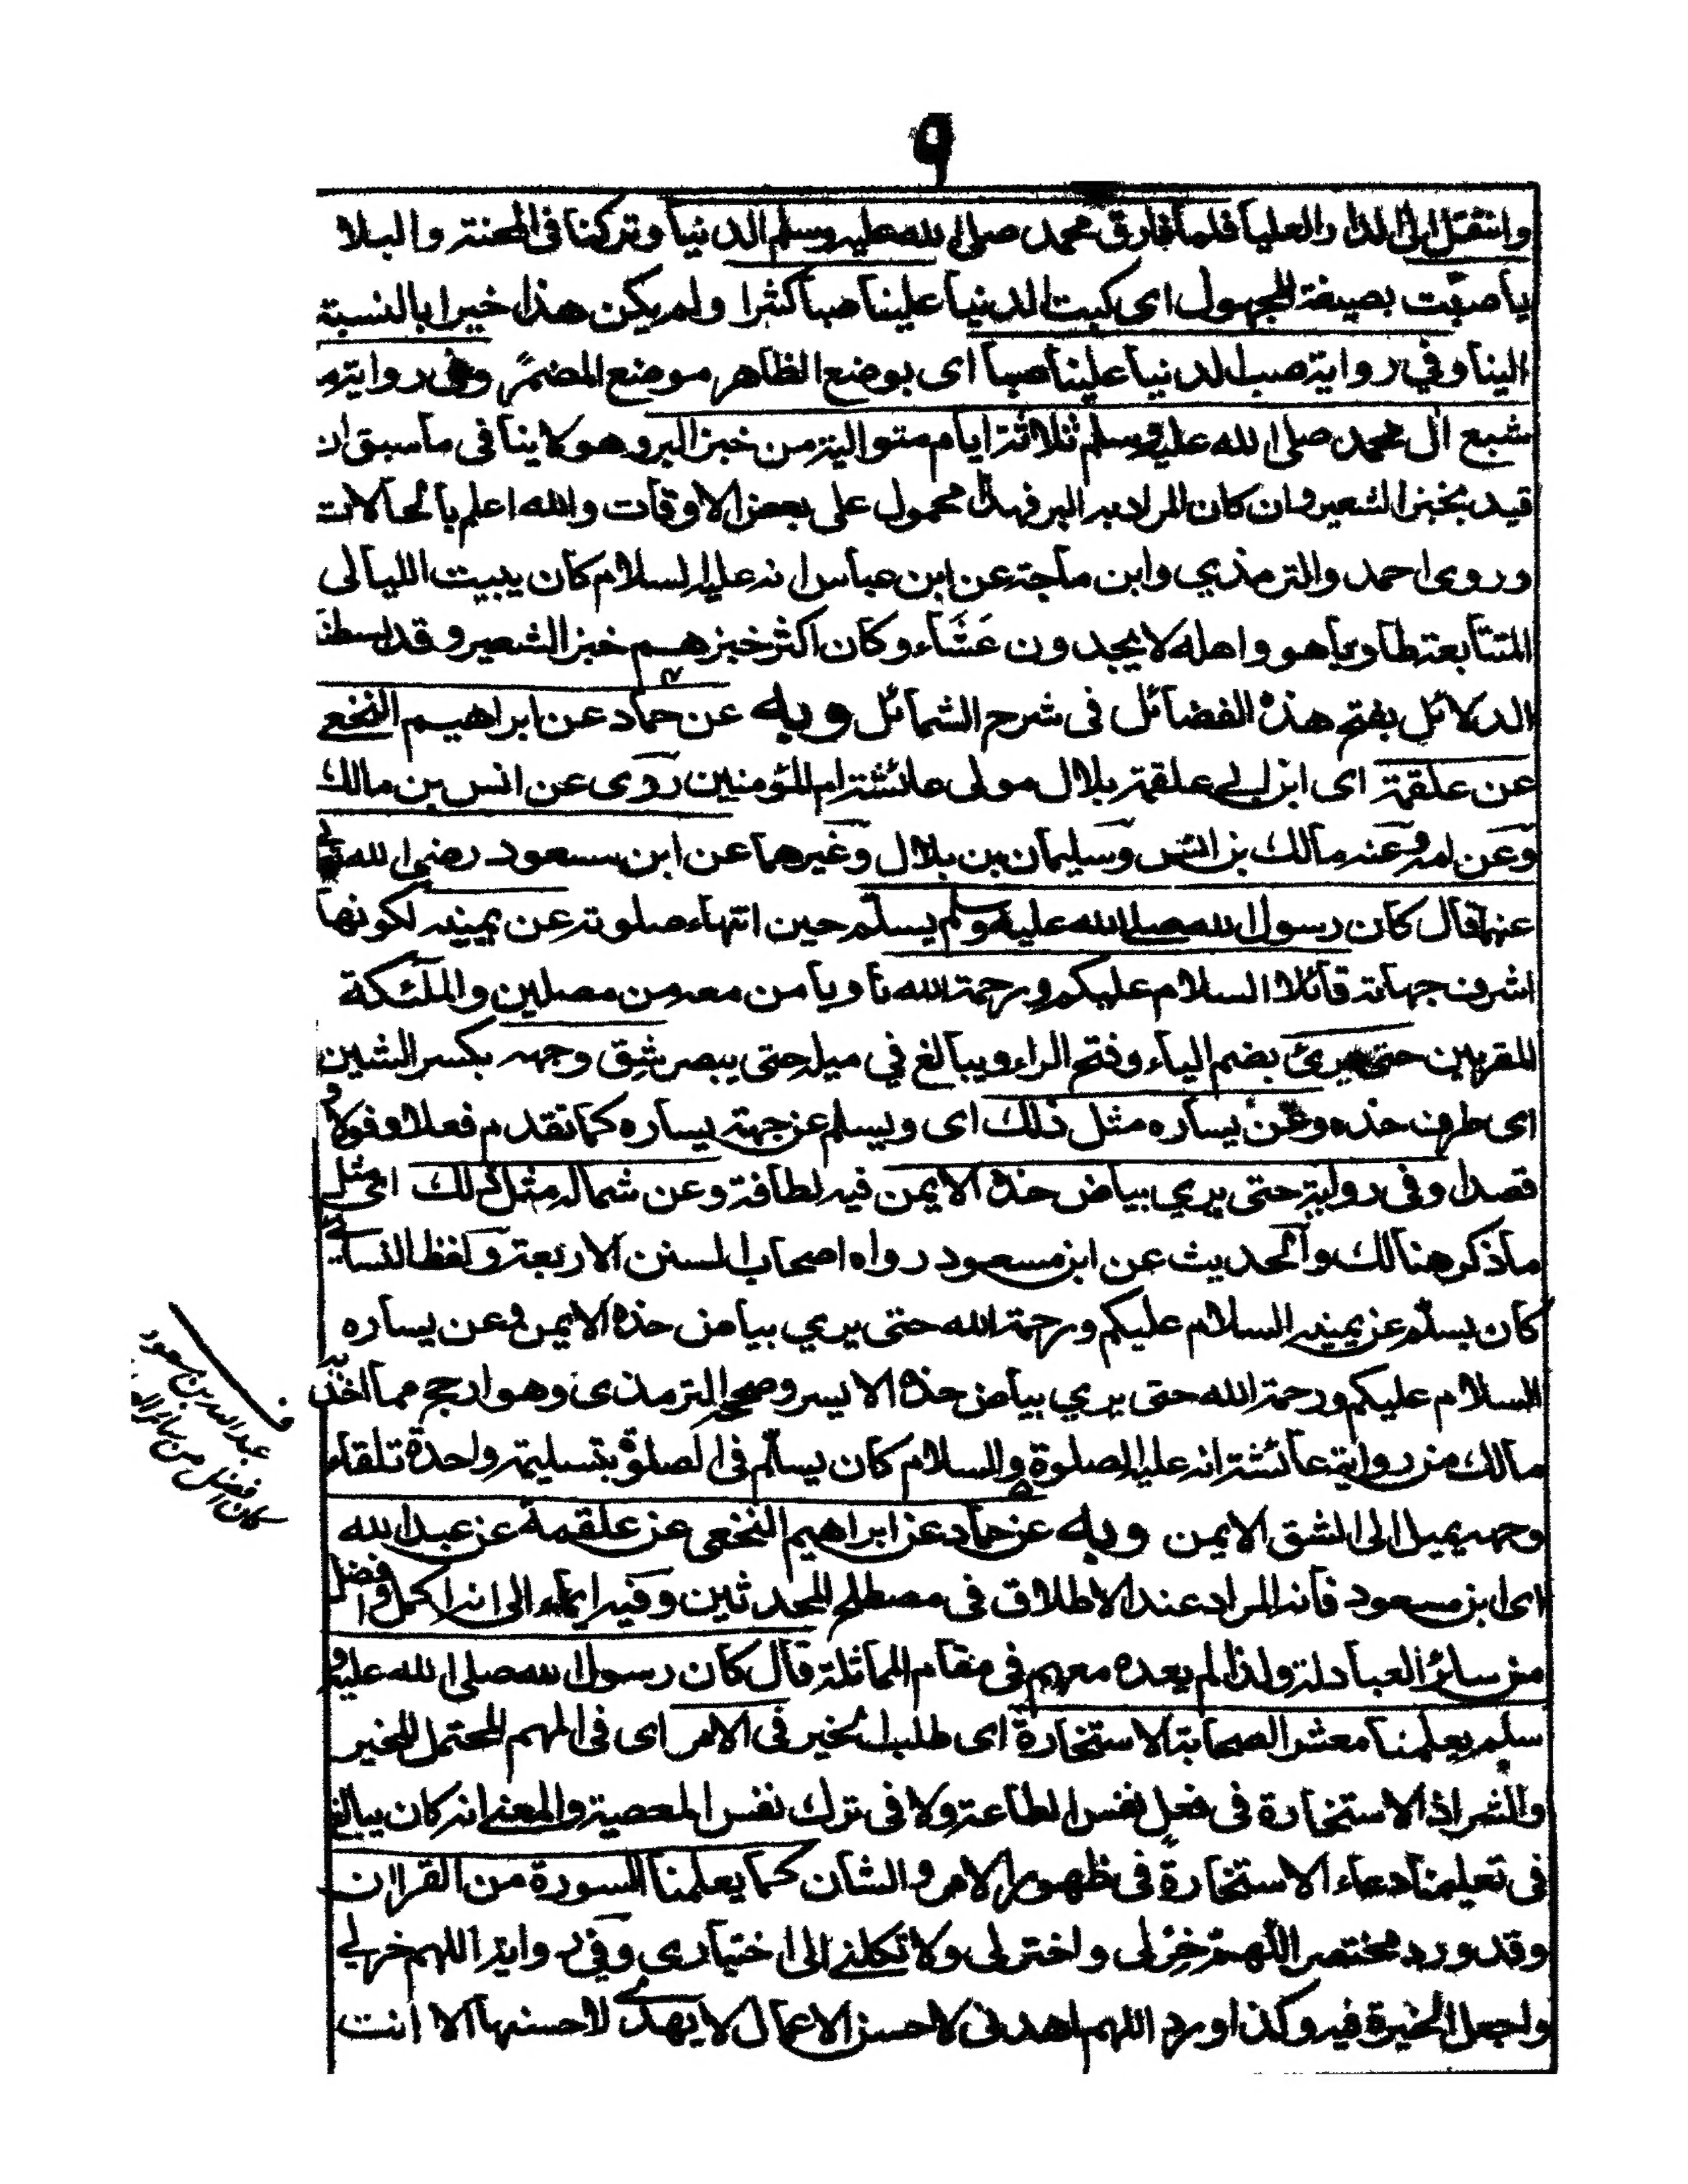 ٩
وانتقل الى الدار العليا فلما فارق محمد صلى الله عليه وسلم الدنيا وتركنا فى المحنة والبلا
يا صبت بصيغة المجهول اى كبت الدنيا علينا صبا كثرا ولم يكن هذا خيرا بالنسبة
الينا وفي رواية صب الدنيا علينا صبا اى بوضع الظاهر موضع المضمر وفى رواية م
شبع ال محمد صلى الله عليه وسلم ثلاثة ايام متوالية من خبز البر وهو لا ينا فى ما سبق ان
قيد بخبز الشعير وان كان المراد به البر فهذا محمول على بعض الاوقات والله اعلم بالحالات
وروى احمد والترمذي وابن ماجة عن ابن عباس انه عليه السلام كان يبيت الليالى
المتتابعة طاويا هو واهله لا يجدون عَشَاء وكان اكثر خبزهم خبز الشعير وقد بسطنا
الدلائل بفتح هذه الفضائل فى شرح الشمائل وبه عن حماد عن ابراهيم النخعى
عن علقمة اى ابن ابي علقمة بلال مولى عائشة ام المؤمنين روى عن انس بن مالك
وعن امه وعنه مالك بن انس وسليمان بن بلال وغيرهما عن ابن مسعود رضى الله تعالى
عنهما قال كان رسول الله صلى الله عليه وسلم يسلّم حين انتهاء صلوته عن يمينه لكونها
اشرف جهاته قائلا السلام عليكم ورحمة الله ناويا من معه من مصلين والملئكة
المقربين حتى يرى بضم الياء وفتح الراء ويبالغ في ميله حتى يبصر شِق وجهه بكسر الشين
اى طرف خذه وعن يساره مثل ذلك اى ويسلم عن جهة يساره كما تقدم فعلا وقولا و
قصدا وفى رواية حتى يري بياض خذه الايمن فيه لطافة وعن شماله مثل ذلك اى مثل
ما ذكر هنالك والحديث عن ابن مسعود رواه اصحاب السنن الاربعة ولفظ النسائى
كان يسلّم عن يمينه السلام عليكم ورحمة الله حتى يري بياض خذه الايمن وعن يساره
السلام عليكم ورحمة الله حتى يري بياض خذه الايسر وصححه الترمذى وهو ارجح مما اخذ به
مالك من رواية عائشة انه عليه الصلوة والسلام كان يسلّم فى الصلوة بتسليمة واحدة تلقاء
وجهه يميل الى الشق الايمن وبه عن حماد عن ابراهيم النخعى عن علقمة عن عبد الله
اى ابن مسعود فانه المراد عند الاطلاق فى مصطلح المحدثين وفيه ايماء الى انه اكمل وافضل
من سائر العبادلة ولذا لم يعده معهم فى مقام المماثلة قال كان رسول الله صلى الله عليه و
سلم يعلمنا معشر الصحابة الاستخارة اى طلب الخير فى الامر اى فى المهم المحتمل للخير
والشر اذ الاستخارة فى فعل نفس الطاعة ولا فى ترك نفس المعصية والمعنى انه كان يبالغ
فى تعليمنا دعاء الاستخارة فى ظهور الامر والشان كما يعلمنا السورة من القران
وقد ورد مختصر اللّهم خِر لى واختر لى ولا تكلنى الى اختيارى وفى رواية اللهم خر لي
واجعل الخيرة فيه وكذا ورد اللهم اهدنى لاحسن الاعمال لا يهدى لاحسنها الا انت
عبد الله بن مسعود
كان افضل من سائر